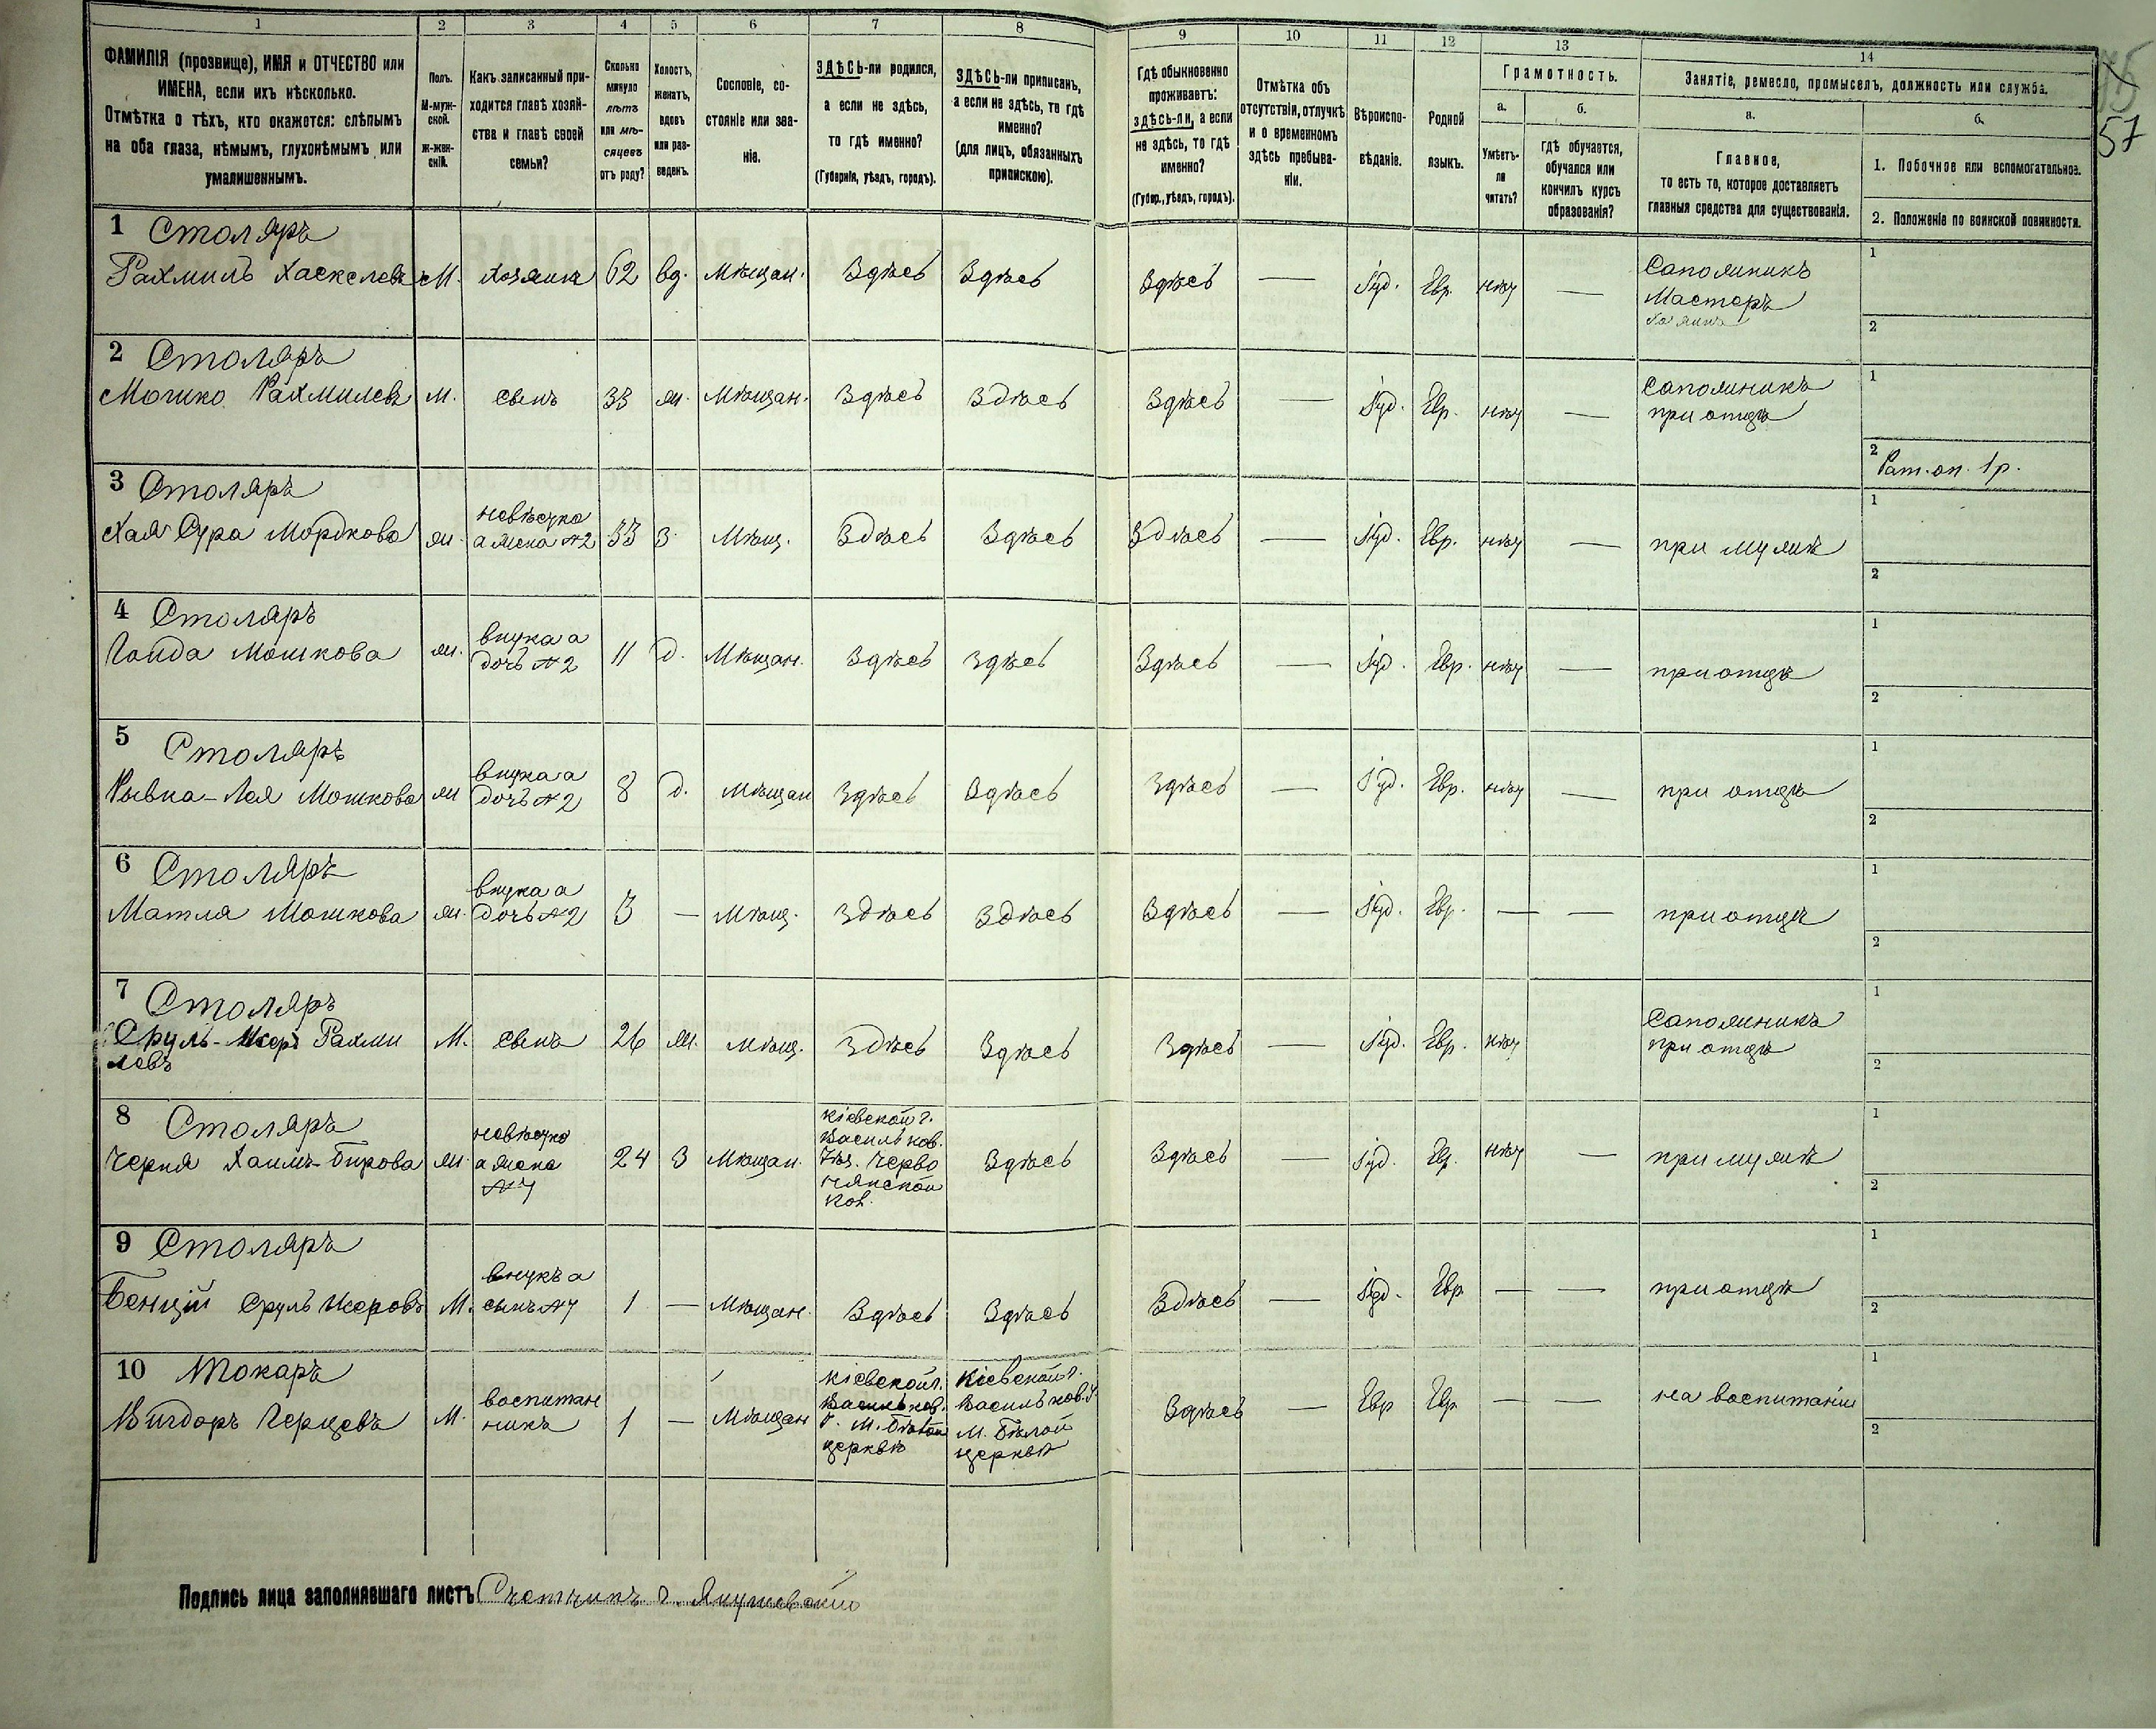 1 2 3 4 5 6 7 8 9 10 11 12 13 14
ФАМИЛІЯ (прозвище), ИМЯ и ОТЧЕСТВО или
ИМЕНА, если ихъ нѣсколько.
Отмѣтка о тѣхъ, кто окажется: слѣпымъ
на оба глаза, нѣмымъ, глухонѣмымъ или
умалишеннымъ.
Полъ.
М-муж-
ской.
Ж-жен-
скій.
Какъ записанный при-
ходится главѣ хозяй-
ства и главѣ своей
семьи?
Сколько
минуло
лѣтъ
или мѣ-
сяцевъ
отъ роду?
Холостъ,
женатъ,
вдовъ
или раз-
веденъ.
Сословіе, со-
стояніе или зва-
ніе.
ЗДѢСЬ-ли родился,
а если не здѣсь,
то гдѣ именно?
(Губернія, уѣздъ, городъ).
ЗДѢСЬ-ли приписанъ,
а если не здѣсь, то гдѣ
именно?
(для лицъ, обязанныхъ
припискою).
Гдѣ обыкновенно
проживаетъ:
здѣсь-ли, а если
не здѣсь, то гдѣ
именно?
(Губер., уѣздъ, городъ).
Отмѣтка объ
отсутствіи, отлучкѣ
и о временномъ
здѣсь пребыва-
ніи.
Вѣроиспо-
вѣданіе.
Родной
языкъ.
Грамотность.
а.
Умѣетъ-
ли
читать?
б.
гдѣ обучается,
обучался или
кончилъ курсъ
образованія?
Занятіе, ремесло, промыселъ, должность или служба.
а.
Главное,
то есть то, которое доставляетъ
главныя средства для существованія.
б.
1. Побочное или вспомогательное.
2. Положеніе по воинской повинности.
57
1 Столяръ
Рахмиль Хаскелевъ М. Хозяинъ 62 вд. Мѣщан. Здѣсь Здѣсь Здѣсь — Іуд. Евр. нѣт —
Сапожникъ
Мастеръ
хозяинъ
1
2
2 Столяръ
Мошко Рахмилевъ М. сынъ 33 ж. Мѣщан. Здѣсь Здѣсь Здѣсь — Іуд. Евр. нѣт —
Сапожникъ
при отцѣ
1
2 Рат. оп. 1 р.
3 Столяръ
Хая Сура Мордкова ж.
невѣстка
а жена №2
33 З. Мѣщ. Здѣсь Здѣсь Здѣсь — Іуд. Евр. нѣт — при мужѣ
1
2
4 Столяръ
Мошкова ж.
внучка а
дочь №2
11 д. Мѣщан. Здѣсь Здѣсь Здѣсь — Іуд. Евр. нѣт — при отцѣ
1
2
5 Столяръ
Рывка-Лея Мошкова ж
внучка а
дочь №2
8 д. Мѣщан Здѣсь Здѣсь Здѣсь — Іуд. Евр. нѣт — при отцѣ
1
2
6 Столяръ
Матля Мошкова ж.
внучка а
дочь №2
3 — Мѣщ. Здѣсь Здѣсь Здѣсь — Іуд. Евр. — — при отцѣ
1
2
7 Столяръ
Сруль-Исеръ Рахми
левъ
М. сынъ 26 ж. мѣщ. Здѣсь Здѣсь Здѣсь — Іуд. Евр. нѣт
Сапожникъ
при отцѣ
1
2
8 Столяръ
Черня ж.
невѣстка
а жена
№7
24 З Мѣщан.
Кіевской г.
Васильков.
уѣз.
Здѣсь Здѣсь — Іуд. Евр. нѣт — при мужѣ
1
2
9 Столяръ
Бенцій Сруль Исеровъ М.
внукъ а
сынъ №7
1 — Мѣщан. Здѣсь Здѣсь Здѣсь — Іуд. Евр — — при отцѣ
1
2
10 Токаръ
Вигдоръ Герцевъ М.
воспитан
никъ
1 — Мѣщан
Кіевской г.
Васильков.
У. М. Бѣлой
церквѣ
Кіевской г.
Васильков. У
М. Бѣлой
церквѣ
Здѣсь — Евр Евр — — на воспитаніи
1
2
Подпись лица заполнявшаго листъ Счетчикъ